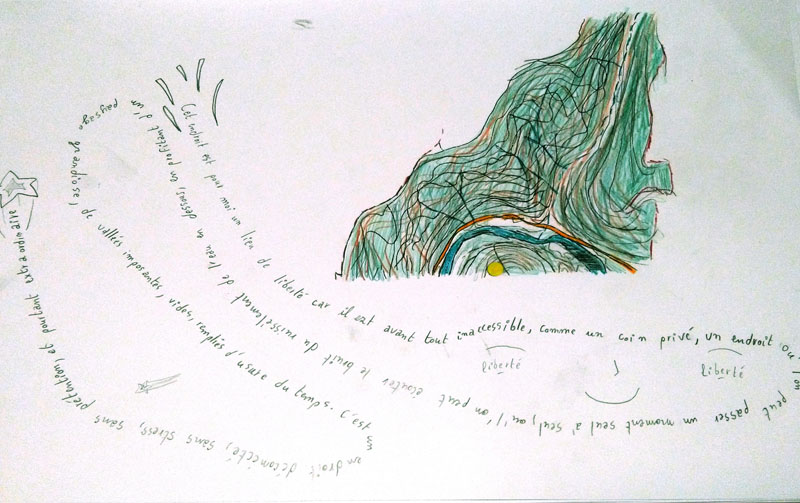 Cet endroit est pour moi un lieu de liberté car il est avant tout inaccessible, comme un coin privé, un endroit où l'on
peut passer un moment seul à seul, où l'on peut écouter le bruit du ruissellement de l'eau en dessous, en profitant d'un
paysage grandiose, de vallées imposantes, vides, remplies d'usure du temps. C'est
un endroit déconnecté, sans stress, sans
prétention, et pourtant extraordinaire
liberté
liberté